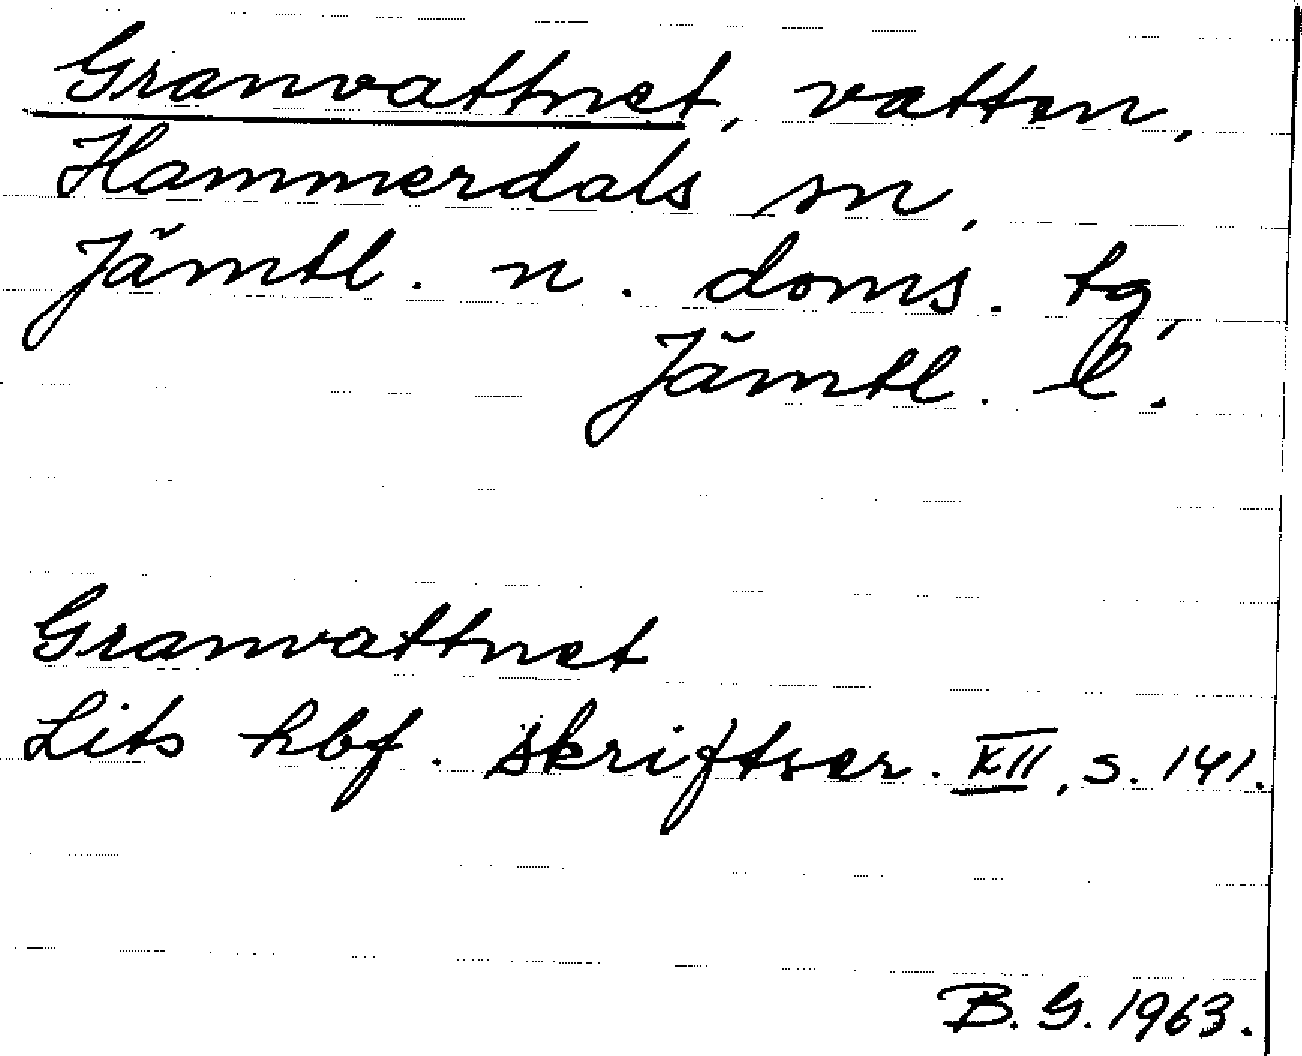 Granvattnet, vatten,
Hammerdals sn,
Jämtl. n. doms. tg,
Jämtl. l.
Granvattnet
Lits hbf. skriftser. XII, s. 141.
B. G. 1963.